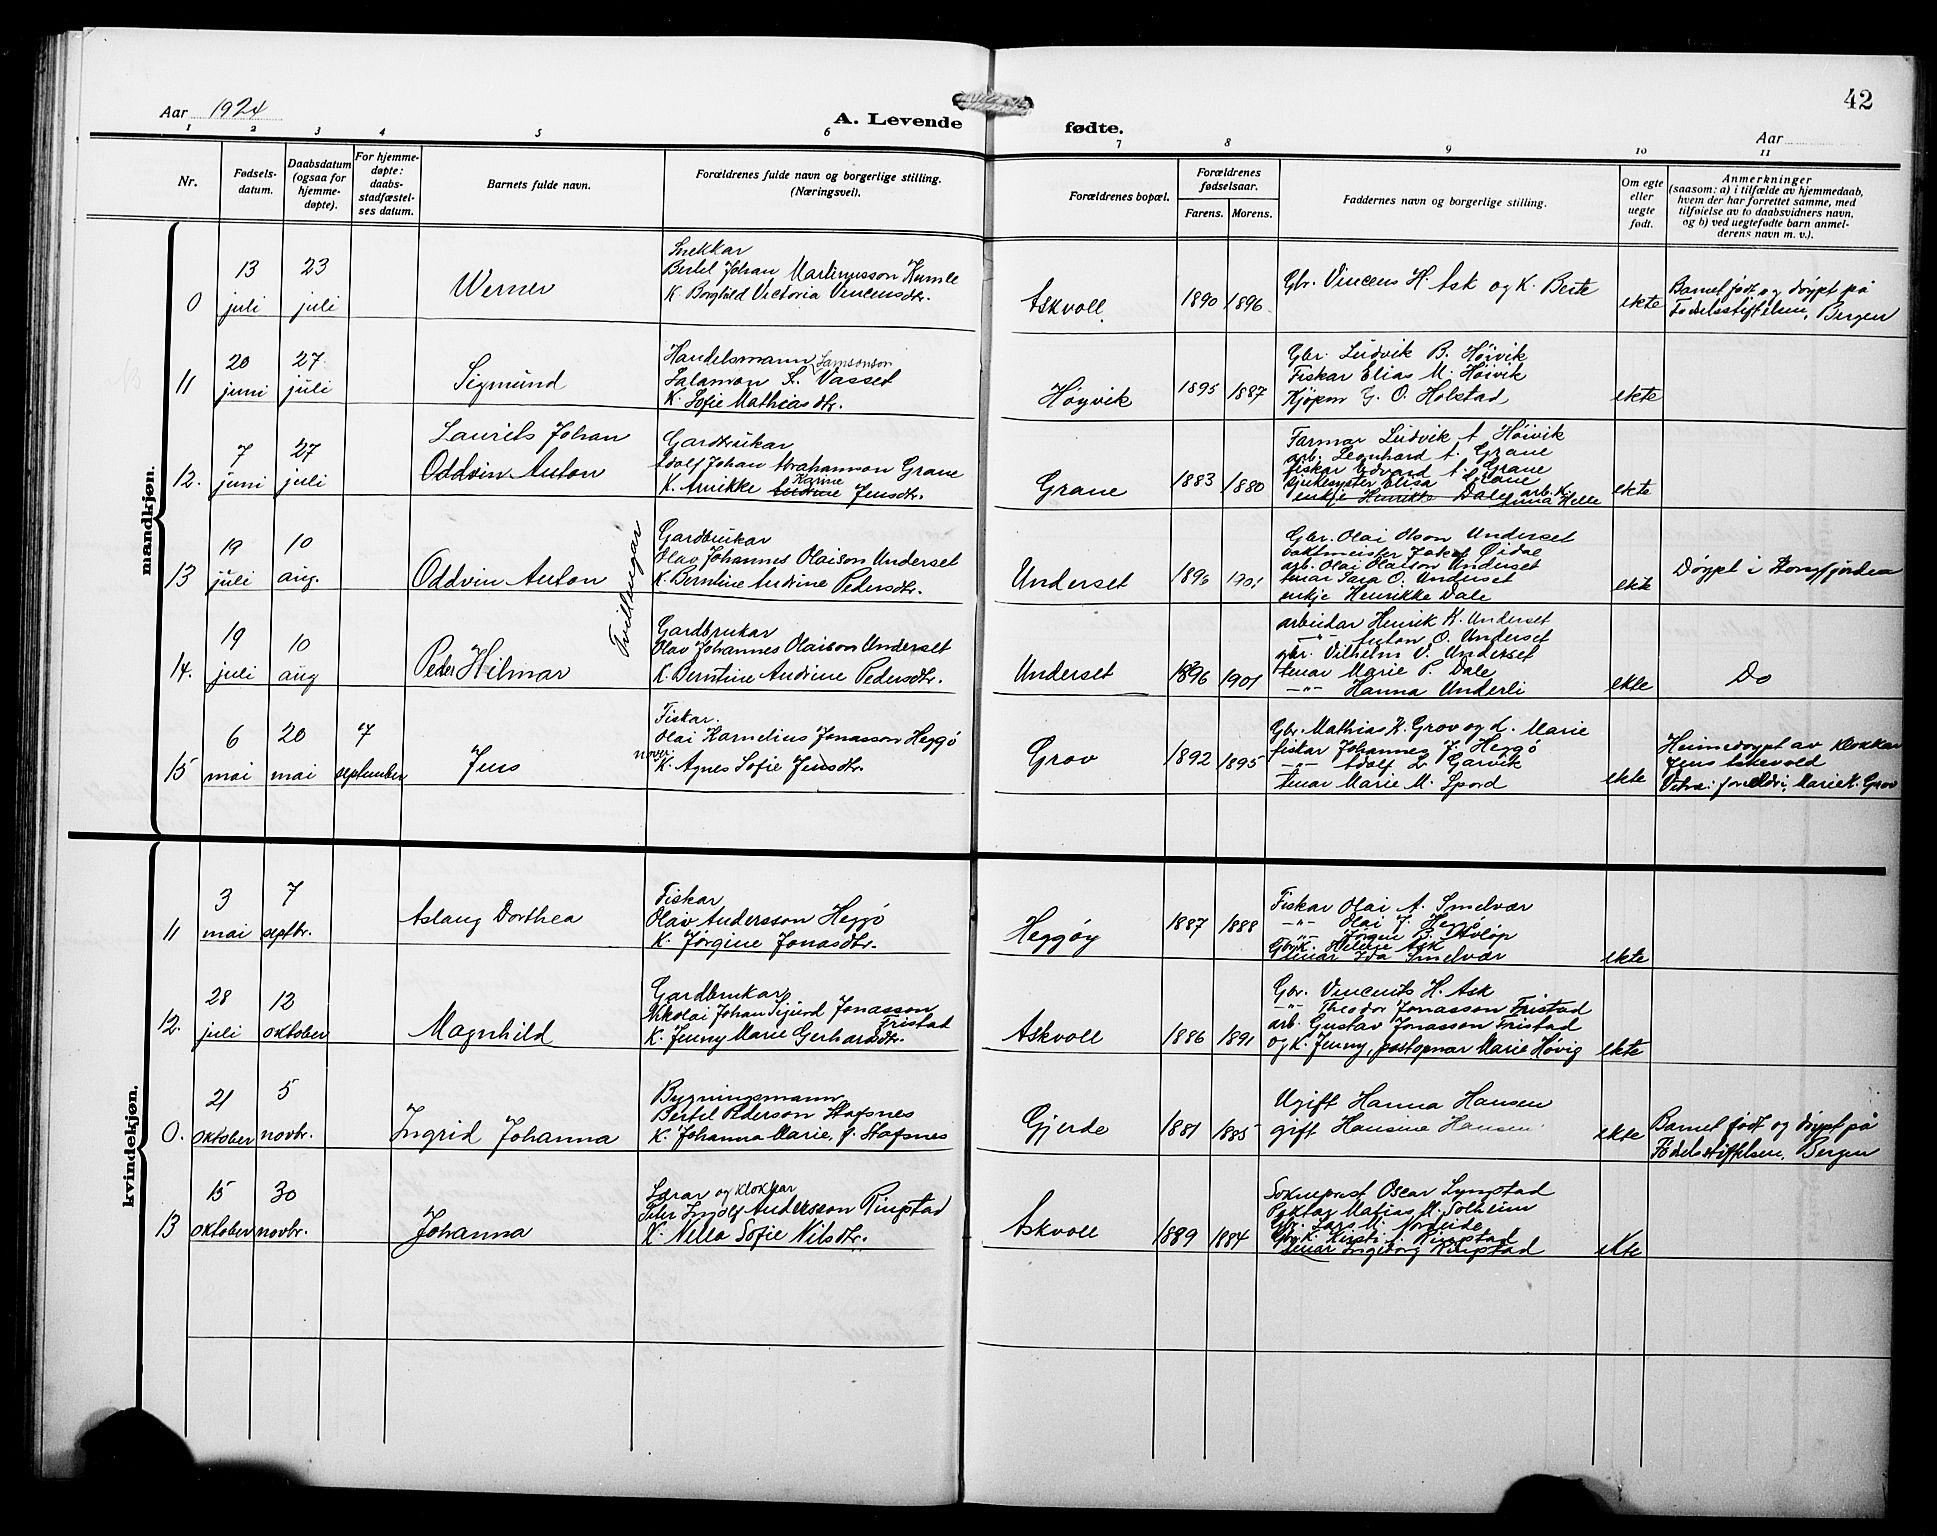 42
Aar 1924
A. Levende fødte.
Aar
1 2 3 4 5 6 7 8 9 10 11
Nr.
Fødsels-
datum.
Daabsdatum
(ogsaa for
hjemme-
døpte).
For hjemme-
døpte:
daabs-
stadfæstel-
ses datum.
Barnets fulde navn.
Forældrenes fulde navn og borgerlige stilling.
(Næringsvei).
Forældrenes bopæl.
Forældrenes
fødselsaar.
Farens. Morens.
Faddernes navn og borgerlige stilling.
Om egte
eller
uegte
født.
Anmerkninger
(saasom: a) i tilfælde av hjemmedaab,
hvem der har forrettet samme, med
tilføielse av to daabsvidners navn,
og b) ved uegtefødte barn anmel-
derens navn m. v.).
mandkjøn.
0
13
juli
23
juli
Werner
Bertel Johan Martinusson Kumle
K. Borghild Victoria Vincensdtr.
Askvoll
1890 1896
Gbr. Vincens H. Ask og K. Berte
ekte
Barnet født og døypt på
Fødselsstiftelsen, Bergen
11
20
juni
27
juli
Sigmund
Handelsmann Samsonson
Salamon S. Vasset
K. Sofie Mathiasdtr.
Høyvik
1895 1887
Gbr. Ludvik B. Høivik
Fiskar Elias M. Høivik
Kjøpm G. O. Holstad
ekte
12.
7
juni
27
juli
Laurits Johan
Oddvin Anton
Gardbrukar
Adolf Johan Abrahamson Grane
K. Arnikke Andrine Karine Jensdtr.
Grane
1883 1880
Farmar Ludvik A. Høivik
arb. Leonhard A. Grane
fiskar Edvard A. Grane
sjukesyster Elisa A. Grane
enkje Henrikke Dale arb. K. Anna Helle
ekte
13
19
juli
10
aug.
Oddvin Anton
Tvillingar
Gardbrukar
Olav Johannes Olaison Underset
K. Berntine Andrine Pedersdtr.
Underset
1896 1901
Gbr. Olai Olson Underset
vaktmeister Jakob Øidal
arb. Olai Olaison Underset
tenar Sara O. Underset
enkje Henrikke Dale
ekte
Døypt i
14.
19
juli
10
aug
Peder Hilmar
Gardbrukar
Olav Johannes Olaison Underset
K. Berntine Andrine Pedersdtr.
Underset
1896 1901
arbeidar Henrik K. Underset
-"- Anton O. Underset
gbr. Vilhelm V. Underset
tenar Marie P. Dale
-"- Hanna Underli
ekte
Do
15
6
mai
20
mai
7
september
Jens
Fiskar.
Olai Kornelius Jonasson Heggø
K. Agnes Sofie Jensdtr.
Grov
1892 1895
Gbr. Mathias K. Grov og K. Marie
fiskar Johannes J. Heggø
-"- Adolf L. Garvik
tenar Marie M. Spord
ekte
Heimedøypt av klokkar
Jens Askevold
Vitne: foreldri, Marie K. Grov
kvindekjøn.
11
3
mai
7
septbr.
Aslaug Dorthea
Fiskar
Olav Andersson Heggø
K. Jørgine Jonasdtr.
Heggøy
1887 1888
Fiskar Olai A. Smelvær
-"- Olai J. Heggø
-"- Jørgen B. Alvløp
Gbrk. Helene Ask
tenar Ida Smelvær
ekte
12.
28
juli
12
oktober
Magnhild
Gardbrukar
Nikolai Johan Sigurd Jonasson
Fristad
K. Jenny Marie Gerhardsdtr.
Askvoll
1886 1891
Gbr. Vincents H. Ask
-"- Theodor Jonasson Fristad
arb. Gustav Jonasson Fristad
og K. Jenny, postopnar Marie Høvig
ekte
0.
21
oktober
5
novbr.
Ingrid Johanna
Bygningsmann
Bertel Pederson Stafsnes
K. Johanna Marie, f. Stafsnes
Gjerde
1881 1885
Ugift Hanna Hansen
gift Hansine Hansen
ekte
Barnet født og døypt på
Fødelsstiftelsen, Bergen
13
15
oktober
30
novbr.
Johanna
Lærar og klokkar
Peter Ingolf Andersson Ringstad
K. Nella Sofie Nilsdtr.
Askvoll
1889 1884
Sokneprest Oscar Lyngstad
Doktor Matias M. Solheim
Gbr. Lars M. Nordeide
Gbrk. Kirsti A. Ringstad
tenar Ingeborg Ringstad
ekte